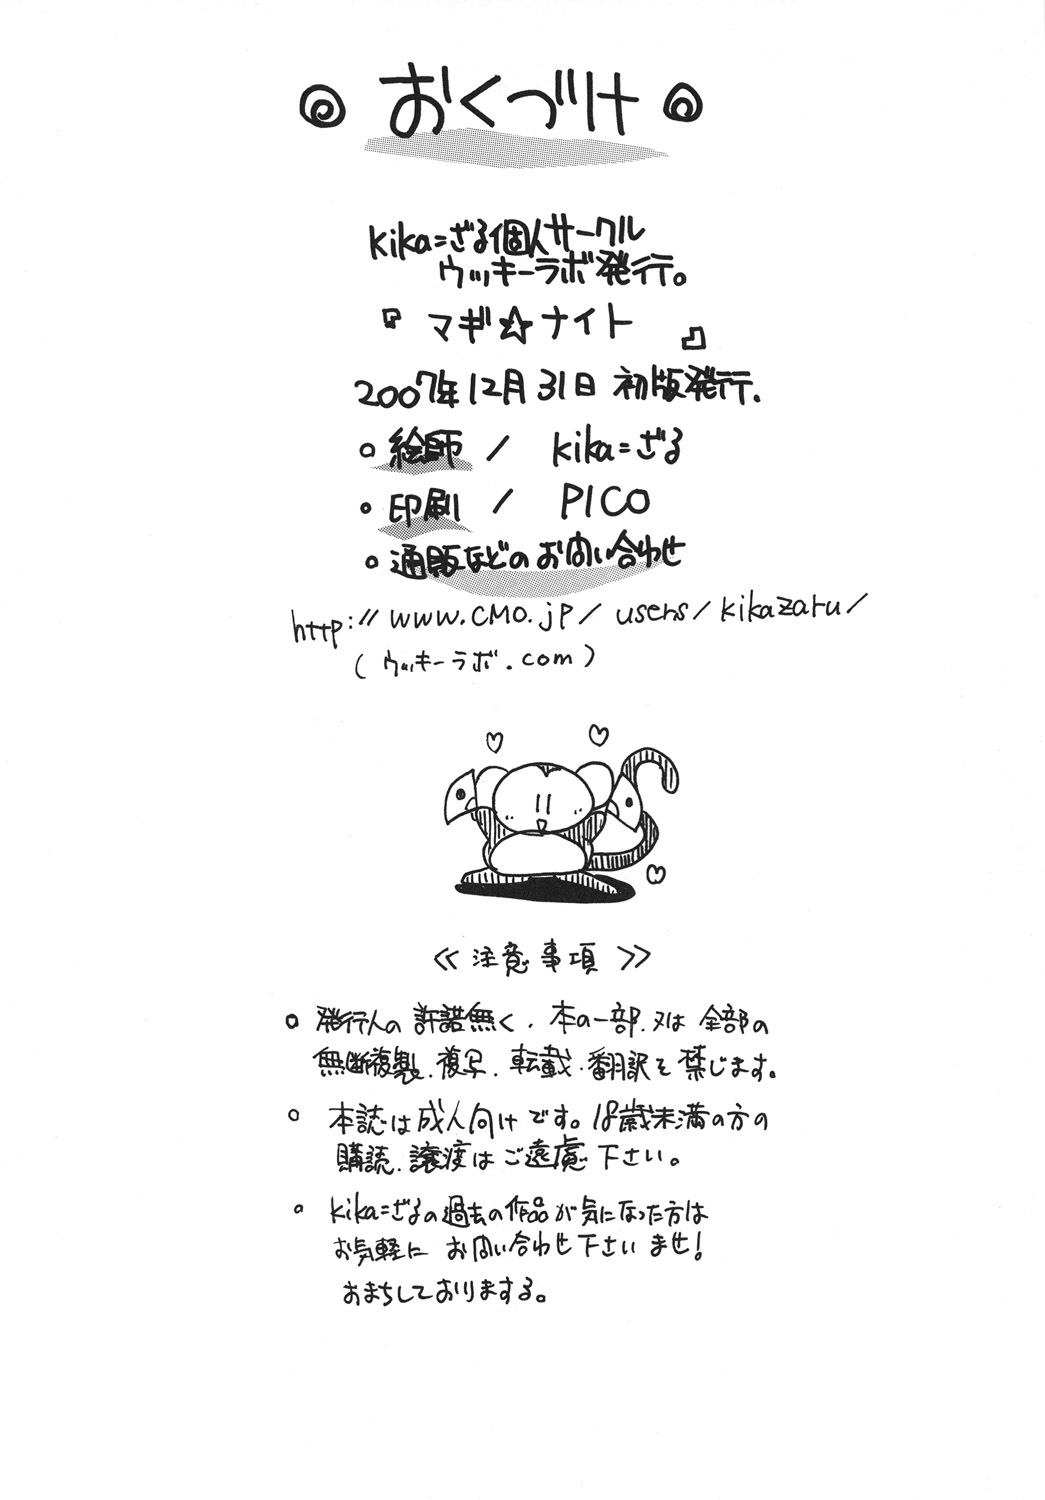 おくづけ
kika=ざる個人サークル
ウッキーラボ発行。
『マギ☆ナイト』
2007年12月31日 初版発行.
○絵師 / kika=ざる
○印刷 / PICO
○通販などのお問い合わせ
http://www.cmo.jp/users/kikazaru/
(ウッキーラボ.com)
≪注意事項≫
○発行人の許諾無く、本の一部、又は全部の
無断複製、複写、転載、翻訳を禁じます。
○本誌は成人向けです。18歳未満の方の
購読、譲渡はご遠慮下さい。
○kika=ざるの過去の作品が気になった方は
お気軽にお問い合わせ下さいませ!
おまちしておりまする。